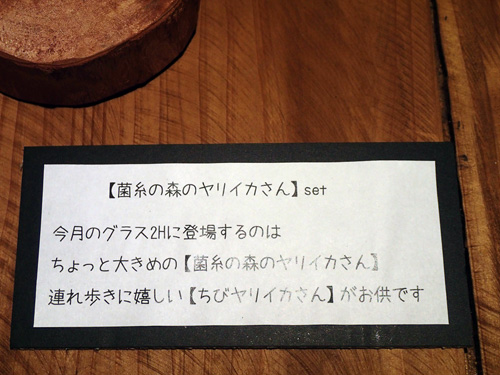 【菌糸の森のヤリイカさん】set
今月のグラス2Hに登場するのは
ちょっと大きめの【菌糸の森のヤリイカさん】
連れ歩きに嬉しい【ちびヤリイカさん】がお供です